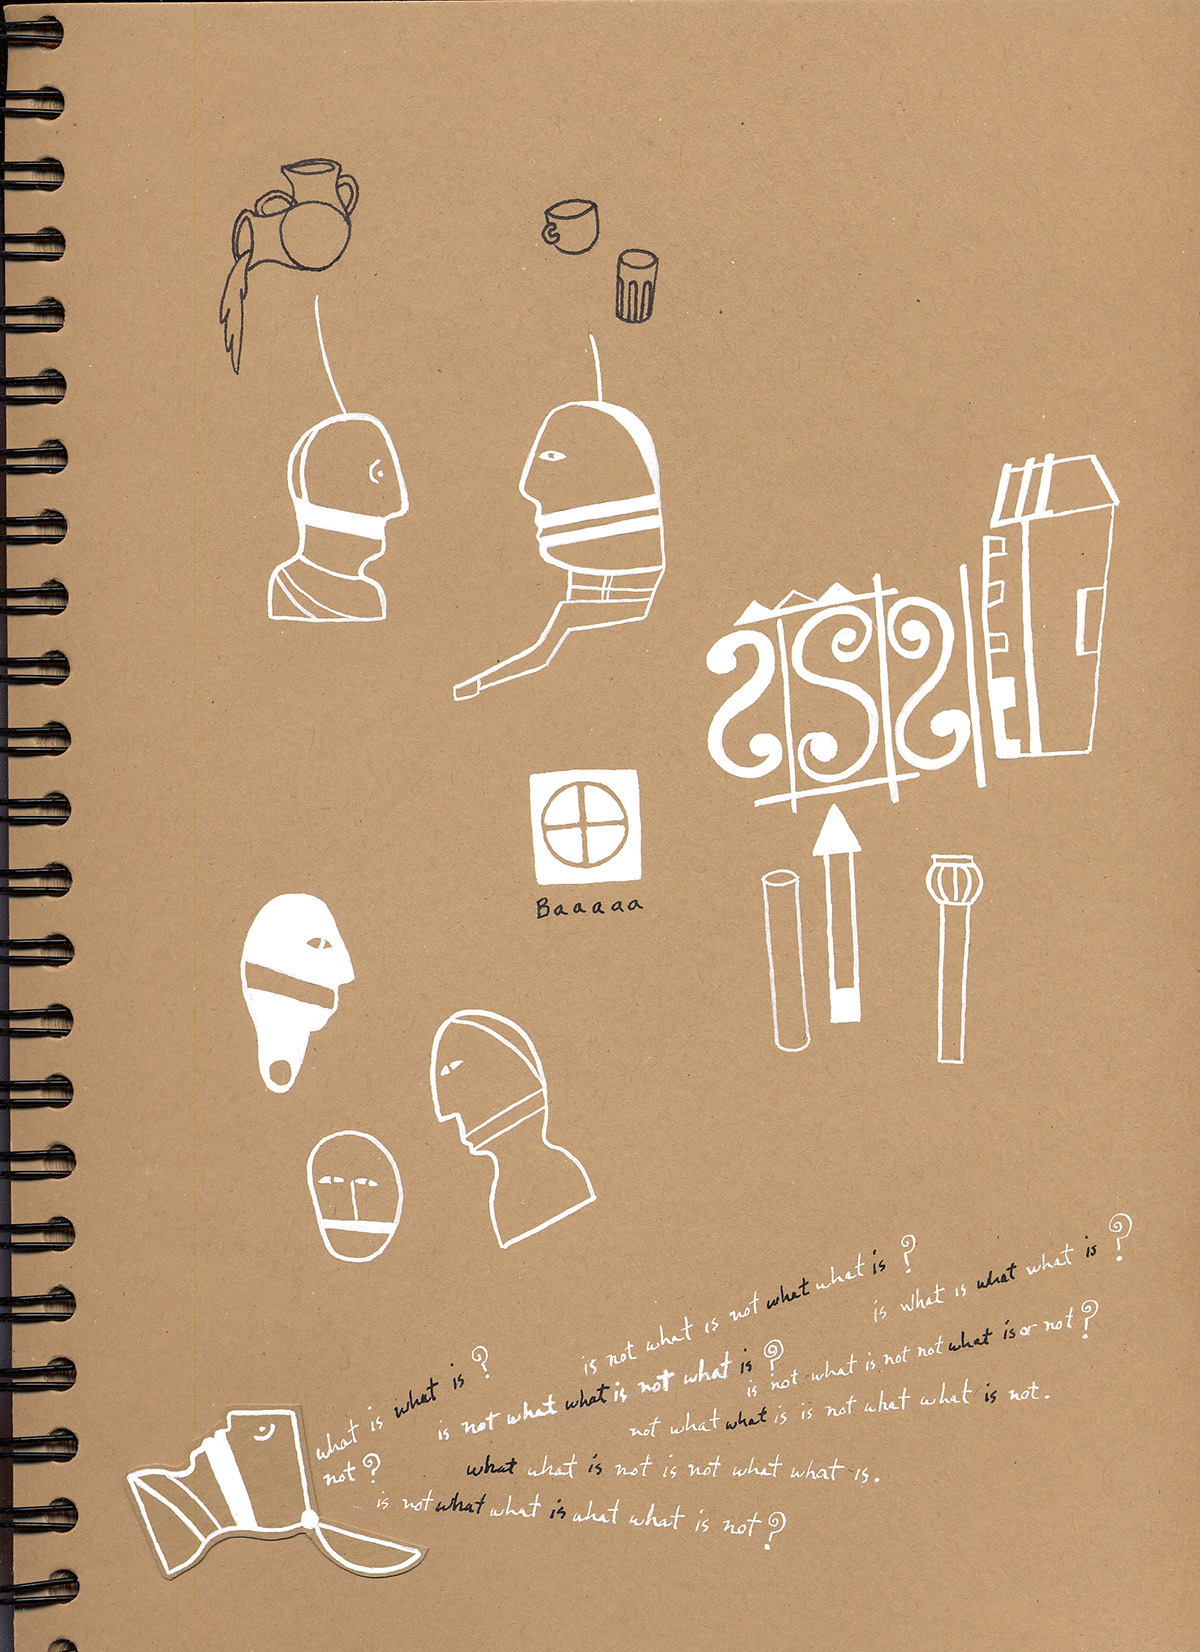 Baaaaa
is not what is not what what is?
is what is what what is?
what is what is?
is not what what is not what is?
is not what is not not what is or not?
not what what is is not what what is not.
not?
what what is not is not what what is.
is not what what is what what is not?